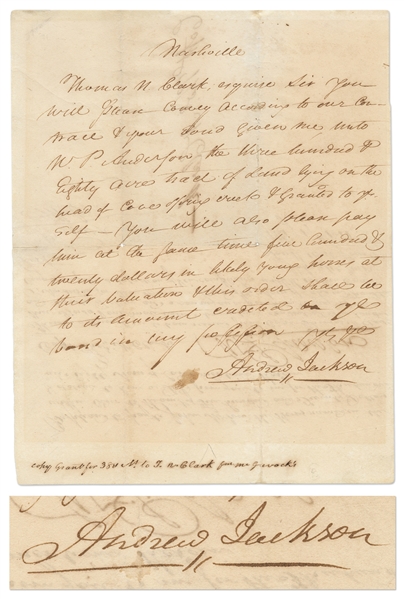 Nashville
Thomas N Clark, esquire Sir You
will Please Convey according to our Con-
tract & your bond given me unto
Wm P. Anderson the three hundred &
Eighty acre tract of land lying on the
head of Cave Spring creek & Granted to yr
self - You will also please pay
him at the same time five hundred &
twenty dollars in likely young horses at
their valuation & this order shall be
to its amount credited on yr
bond in my possession
Andrew Jackson
copy Grant for 384 As. to T. N. Clark
Andrew Jackson